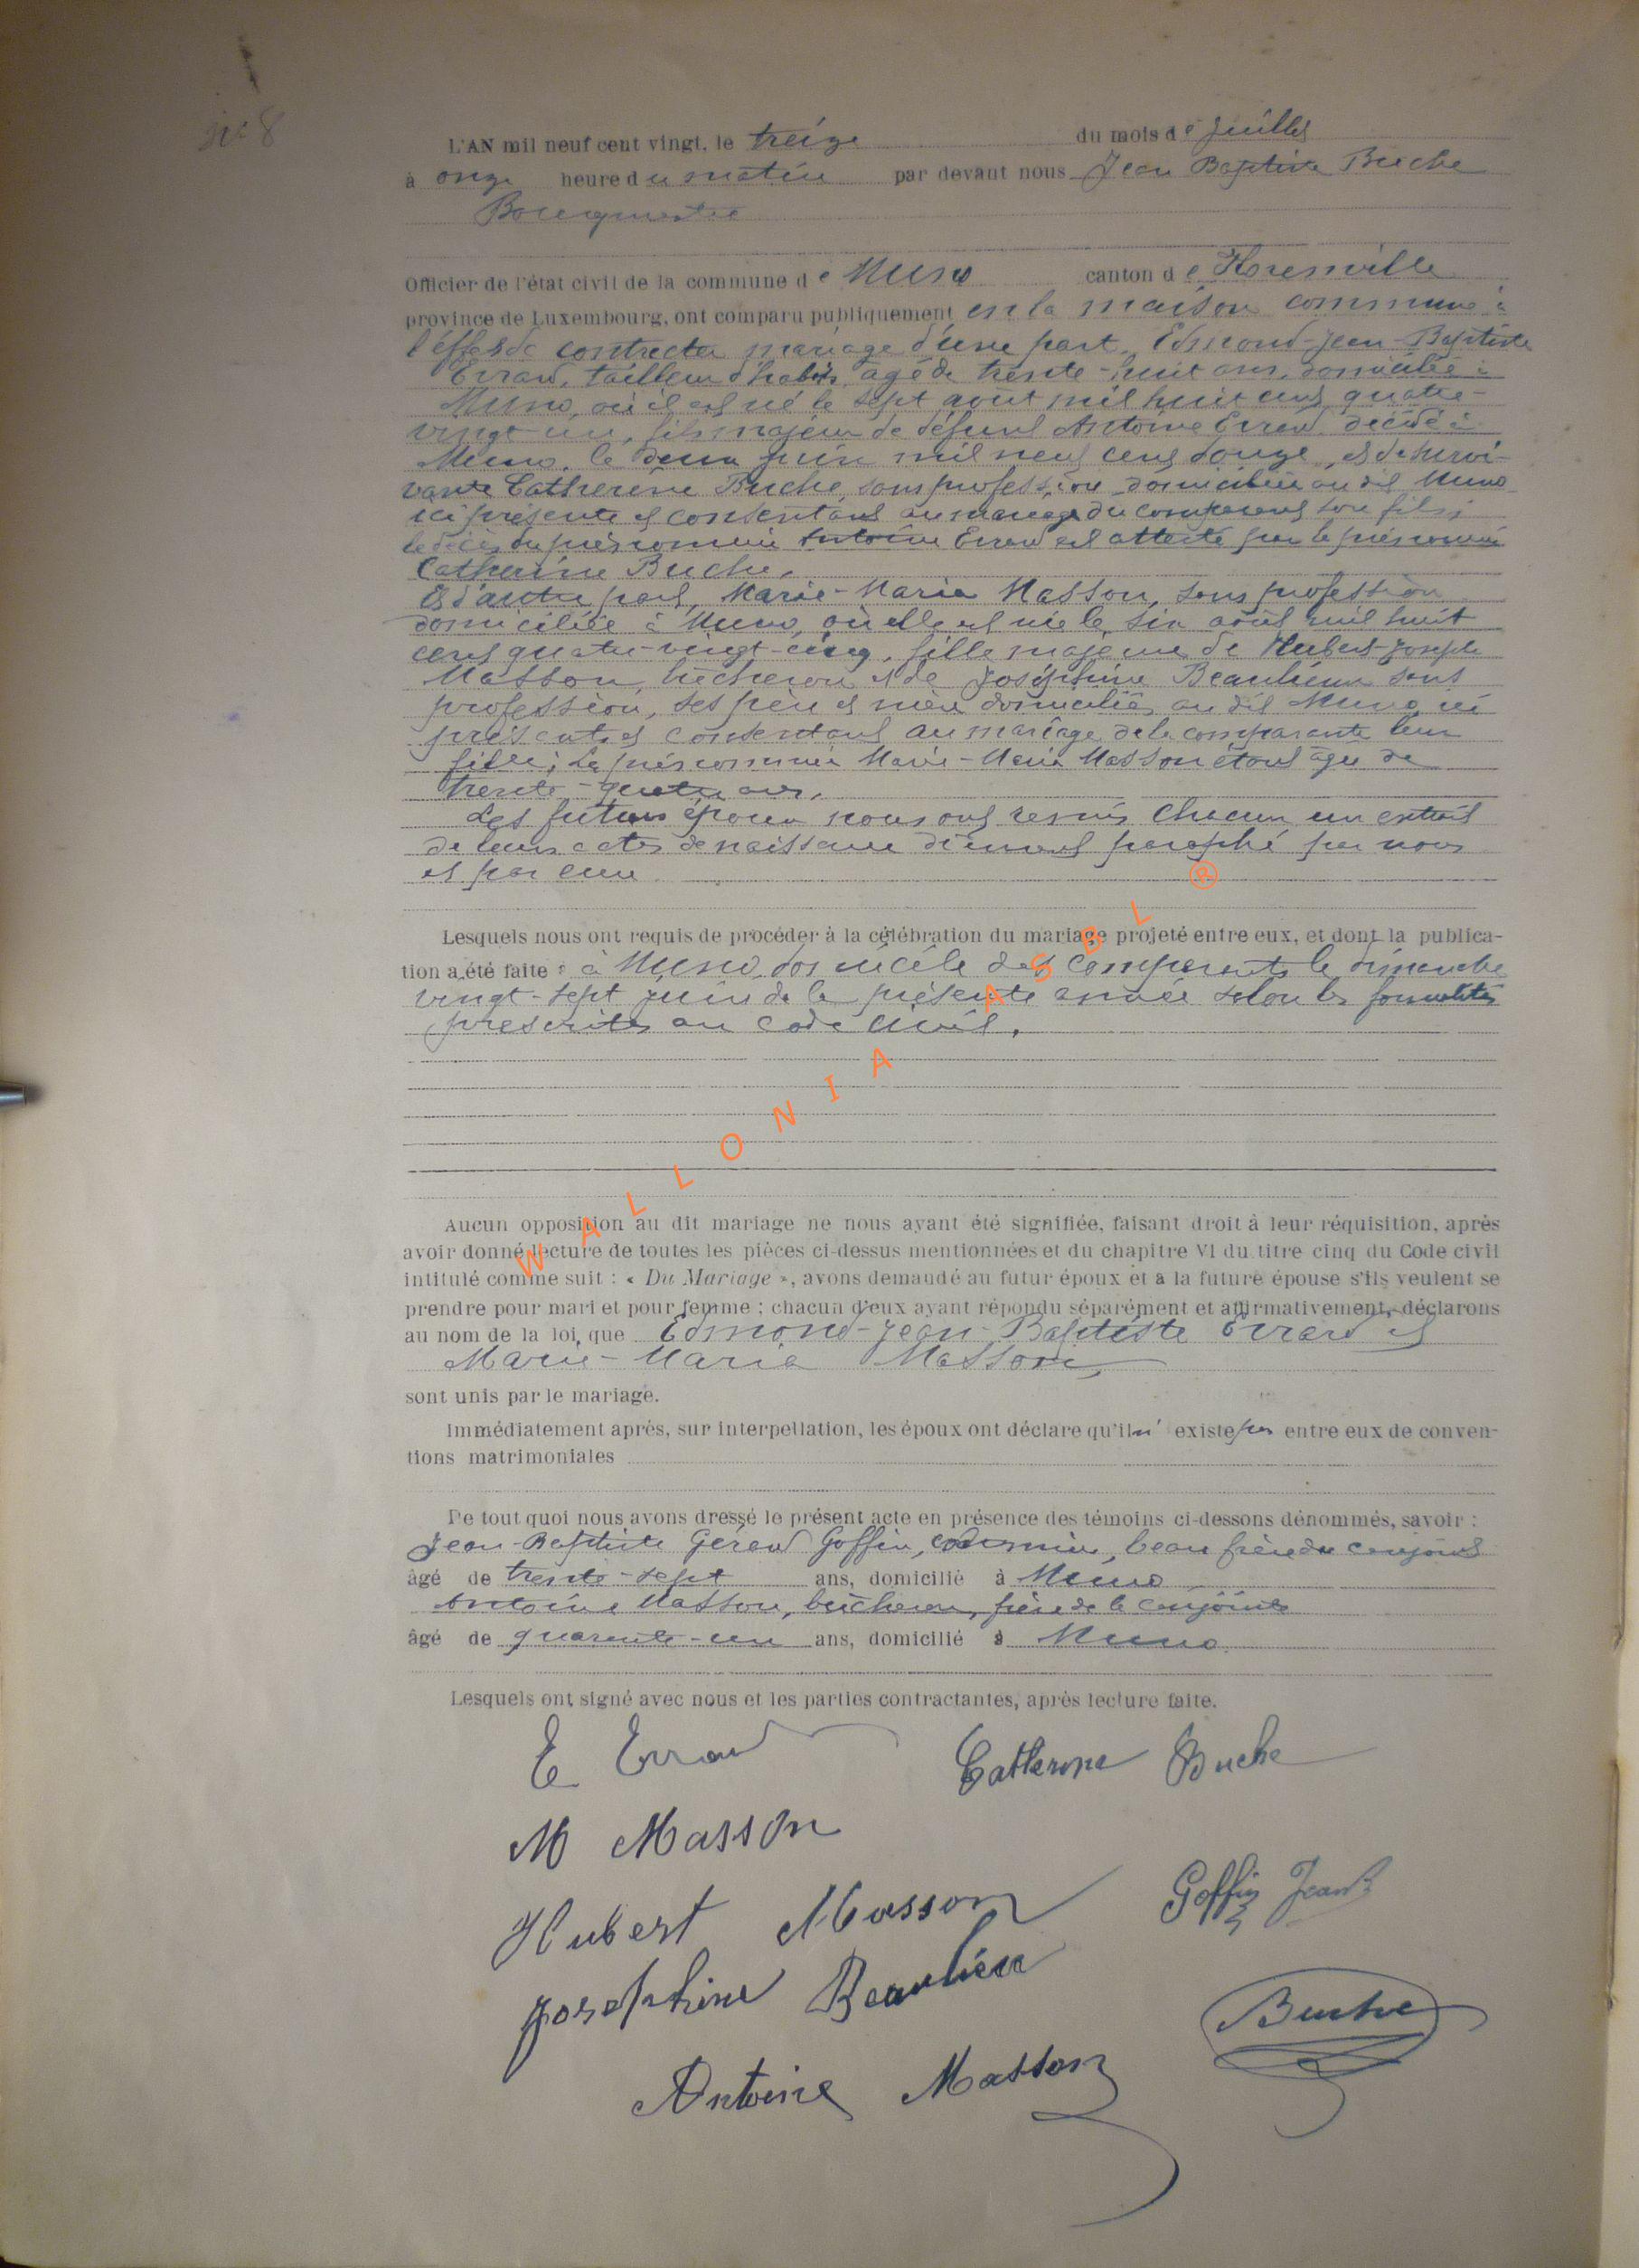 N° 8
L'AN mil neuf cent vingt, le treize du mois de juillet
à onze heure du matin par devant nous Jean Baptiste Buche
Bourgmestre
Officier de l'état civil de la commune de Muno canton de Florenville
province de Luxembourg, ont comparu publiquement en la maison commune à
l'effet de contracter mariage d'une part, Edmond-Jean-Baptiste
Errard, tailleur d'habits, âgé de trente-huit ans, domicilié à
Muno, où il est né le sept août mil huit cent quatre-
vingt-un, fils majeur de défunt Antoine Errard décédé à
Muno, le deux juin mil neuf cent douze, et de survi-
vante Catherine Buche, sans profession domiciliée au dit Muno
ici présente et consentant au mariage du comparant son fils;
le décès du prénommé Antoine Errard est attesté par la prénommée
Catherine Buche.
Et d'autre part, Marie-Maria Masson, sans profession
domiciliée à Muno, où elle est née le six août mil huit
cent quatre-vingt-cinq, fille majeure de Hubert-Joseph
Masson, bûcheron et de Joséphine Beaulieu sans
profession, ses père et mère domiciliés au dit Muno, ici
présents et consentant au mariage de la comparante leur
fille; La prénommée Marie-Maria Masson étant âgée de
trente-quatre ans.
Les futurs époux nous ont remis chacun un extrait
de leurs actes de naissance dûment paraphé par nous
et par eux.
Lesquels nous ont requis de procéder à la célébration du mariage projeté entre eux, et dont la publica-
tion a été faite : à Muno, domicile des comparants le dimanche
vingt-sept juin de la présente année selon les formalités
prescrites au code civil.
Aucun opposition au dit mariage ne nous ayant été signifiée, faisant droit à leur réquisition, après
avoir donné lecture de toutes les pièces ci-dessus mentionnées et du chapitre VI du titre cinq du Code civil
intitulé comme suit : « Du Mariage », avons demandé au futur époux et à la future épouse s'ils veulent se
prendre pour mari et pour femme ; chacun d'eux ayant répondu séparément et affirmativement, déclarons
au nom de la loi, que Edmond-Jean-Baptiste Errard et
Marie-Maria Masson,
sont unis par le mariage.
Immédiatement après, sur interpellation, les époux ont déclare qu'il n' existe pas entre eux de conven-
tions matrimoniales
De tout quoi nous avons dressé le présent acte en présence des témoins ci-dessons dénommés, savoir :
Jean-Baptiste Gérard Goffin, beau frère du conjoint
âgé de trente-sept ans, domicilié à Muno
Antoine Masson, bûcheron, frère de la conjointe
âgé de quarante-un ans, domicilié à Muno.
Lesquels ont signé avec nous et les parties contractantes, après lecture faite.
E Errard Catherine Buche
M Masson
Hubert Masson Goffin Jean B
Josephine Beaulieu
Buche
Antoine Masson
WALLONIA ASBL ®